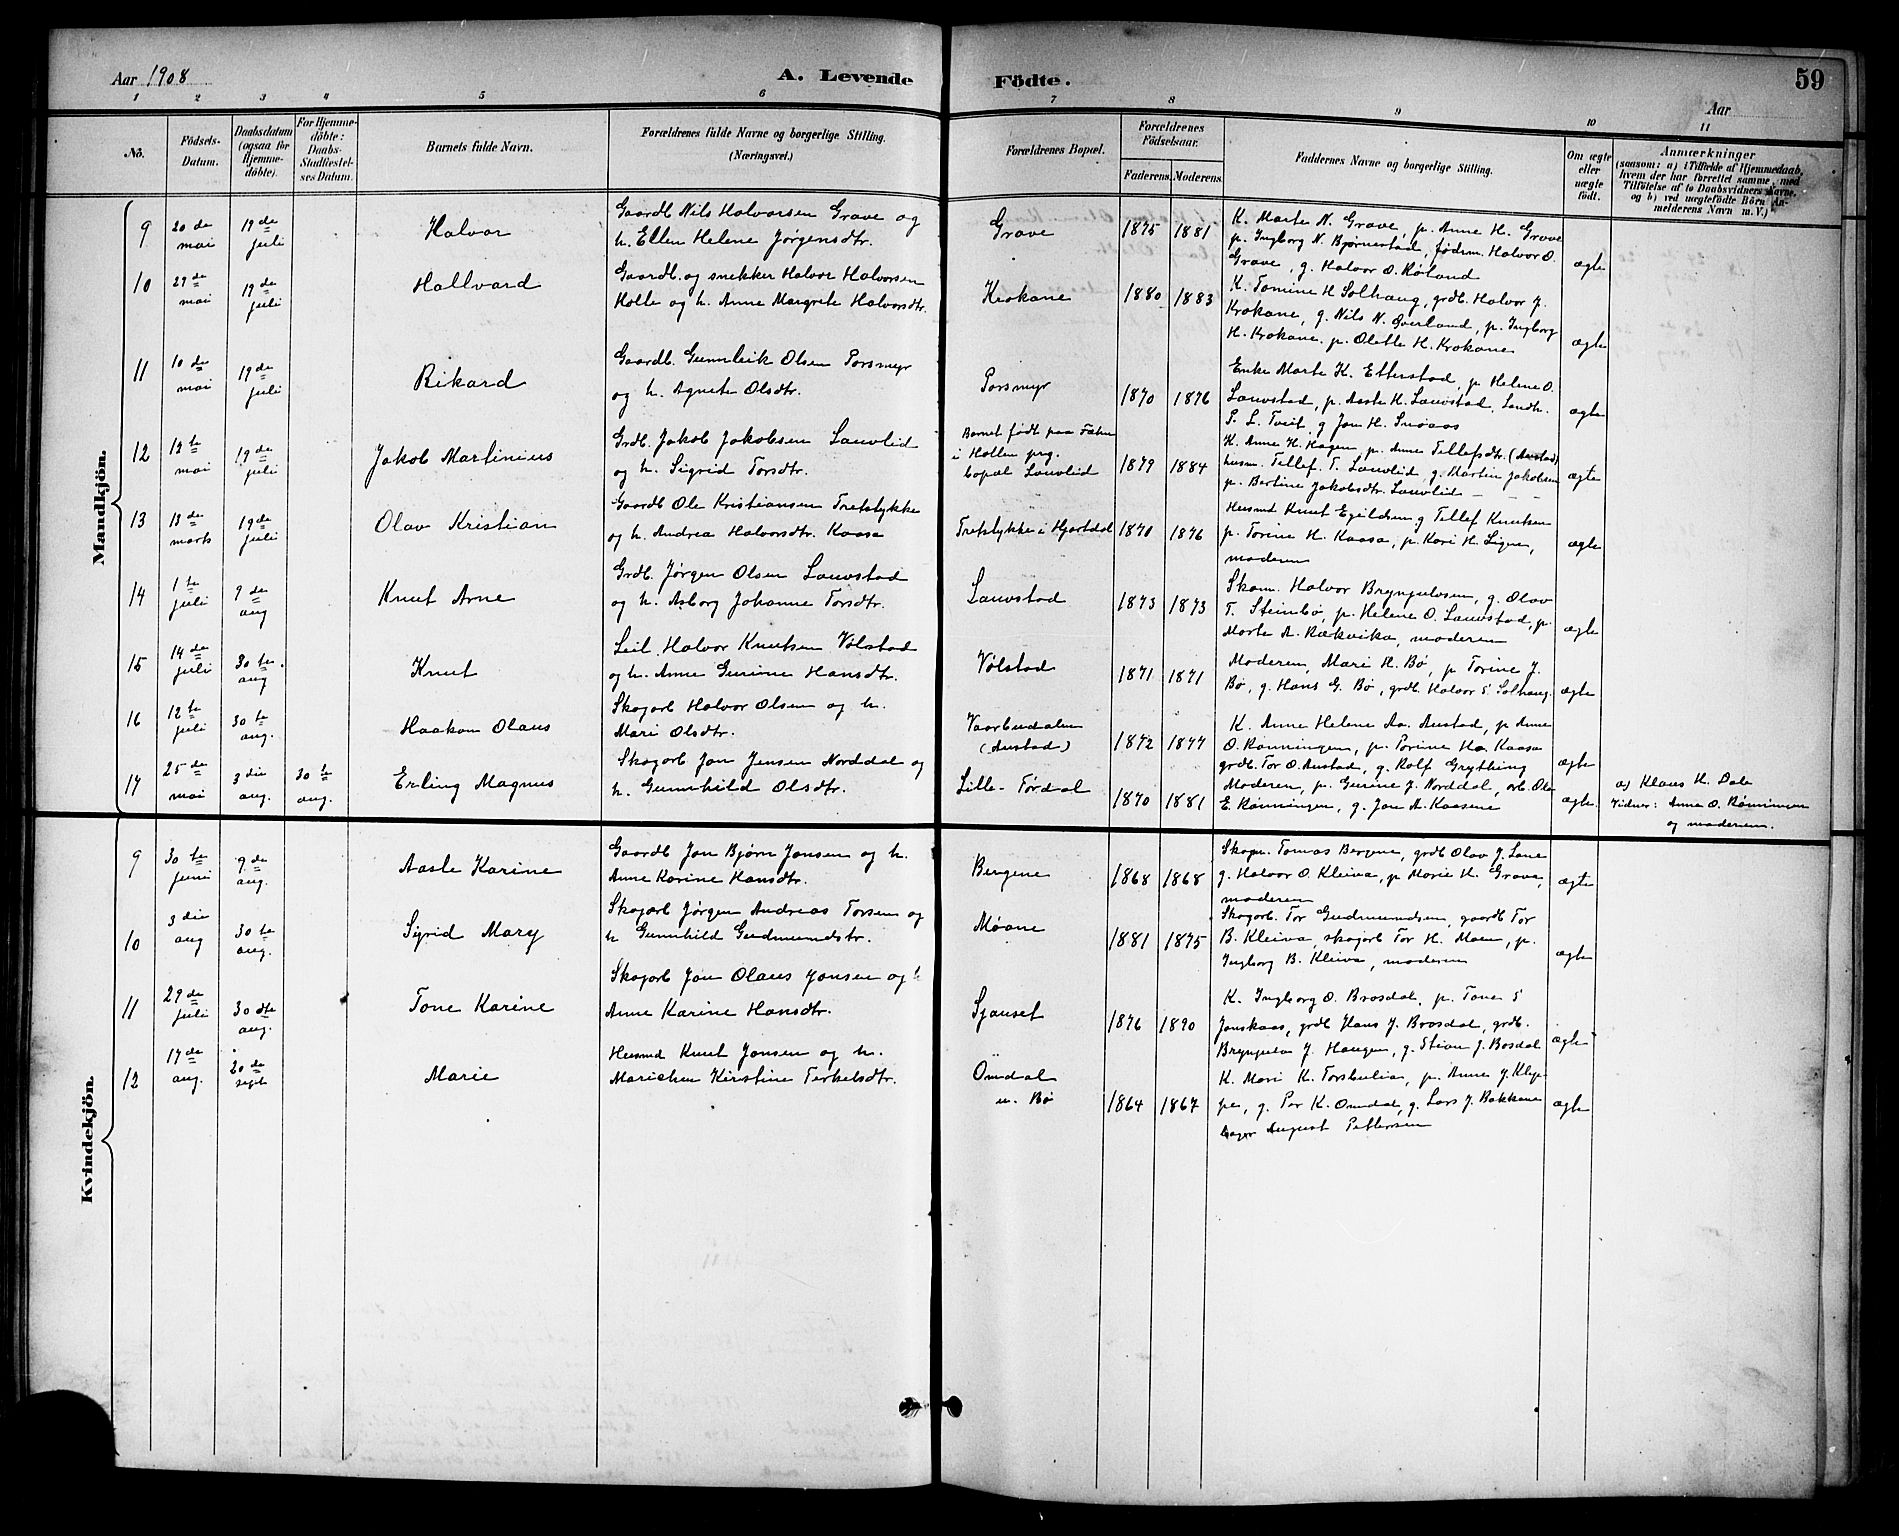 Aar 1908
A. Levende Födte.
59
Aar
1 2 3 4 5 6 7 8 9 10 11
Nô.
Födsels-Datum.
Daabsdatum (ogsaa for Hjemme-döbte).
For Hjemme-döbte: Daabs-Stadfæstel-ses Datum.
Barnets fulde Navn.
Forældrenes fulde Navne og borgerlige Stilling. (Næringsvei.)
Forældrenes Bopæl.
Forældrenes Födselsaar.
Faderens. Moderens.
Faddernes Navne og borgerlige Stilling.
Om ægte eller uægte födt.
Anmærkninger
(saasom: a) i Tilfælde af Hjemmedaab,
hvem der har forrettet samme, med
Tilföielse af to Daabsvidners Navne,
og b) ved uægtefödte Börn An-
melderens Navn m. V.)
Mandkjön.
9
20 de mai
19 de juli
Halvor
Gaardb. Nils Halvorsen Grave og
h. Ellen Helene Jørgensdtr.
Grave
1875 1881
K. Marte N. Grave, p. Anne H. Grave
p. Ingborg N. Bjørnestad, fødem. Halvor O.
Grave, g. Halvor O. Røiland
ægte
10
29 de mai
19 de juli
Hallvard
Gaardb. og snekker Halvor Halvorsen
Holte og h. Anne Margrete Halvorsdtr.
Krokane
1880 1883
K. Tomine H Solhaug, grdb. Halvor J.
Krokane, g. Nils N. Øverland, p. Ingborg
H. Krokane. p. Olette H. Krokane
ægte
11
10 de mai
19 de juli
Rikard
Gaardb. Gunnleik Olsen Porsmyr
og h. Agnete Olsdtr.
Porsmyr
1870 1876
Enke Marte K. Etterstad, p. Helene O.
Lauvstad, p. Aaste H. Lauvstad, Landh.
P. L. Tveit, g Jon H. Snøaas
ægte
12
13 te mai
19 de juli
Jakob Martinius
Grdb. Jakob Jakobsen Lauvlid
og h. Sigrid Torsdtr.
Barnet født paa
i Hollen prg.
bopæl Lauvlid
1879 1884
K. Anne H. Hagen, p. Anne Tellefsdtr. (Austad)
husm. Tellef. T. Lauvlid, g. Martin Jakobsen
p. Bertine Jakobsdtr. Lauvlid
ægte
13
13 de marts
19 de juli
Olav Kristian
Gaardb Ole Kristiansen Tretstykke
og h. Andrea Halvorsdtr. Kaasa
Tretstykke i Hjartdal
1870 1876
Husmd Knut Egildsen, g Tellef Knutsen
p. Torine H. Kaasa, p. Kari H. Ligne,
moderen
ægte
14
1 te juli
9 de aug
Knut Arne
Grdb. Jørgen Olsen Lauvstad
og h. Asborg Johanne Torsdtr.
Lauvstad
1873 1873
Skom. Halvor Bryngulvsen, g. Olav
T. Steinbø, p. Helene O. Lauvstad, p.
Marte A. Rækvika, moderen
ægte
15
14 de juli
30 te aug
Knut
Leil. Halvor Knutsen Vølstad
og h. Anne Gurine Hansdtr.
Vølstad
1871 1871
Moderen, Mari H. Bø, p Torine J.
Bø, g. Hans G. Bø, grdb. Halvor S. Solhaug.
ægte
16
12 te juli
30 te aug.
Haakon Olaus
Skogarb Halvor Olsen og h.
Mari Olsdtr.
Vaarbudalen
(Austad)
1872 1877
K. Anne Helene Aa. Austad, p Anne
O. Rønningen, p. Torine Ha. Kaasa
grdb. Tor O. Austad, g. Rolf Grytting
ægte
17
25 de mai
3 die aug.
30 te aug.
Erling Magnus
Skogarb. Jon Jensen Norddal og
h. Gunnhild Olsdtr.
Lille-Tørdal
1870 1881
Moderen, p. Gurine J. Norddal, arb. Ole
E. Rønningen, g. Jon A. Kaasene
ægte.
a) Klaus H. Dale
Vidner: Anne O. Rønningen
og moderen.
Kvindekjön.
9
30 te juni
9 de aug.
Aasle Karine
Gaardb Jon Bjørn Jonsen og h.
Anne Karine Hansdtr.
Bergene
1868 1868
Skogv. Tomas Bergene, grdb Olav J. Lone
g. Halvor O. Kleiva, p. Marie H. Grave,
moderen
ægte
10
3 die aug
30 te aug.
Sigrid Mary
Skogarb Jørgen Andreas Torsen og
h Gunnhild Gudmundstr.
Møane
1881 1875
Skogarb. Tor Gudmundsen, gaardb Tor
B. Kleiva, skogarb Tor H. Moen, p.
Ingborg B. Kleiva, moderen
ægte
11
29 de juli
30 dte aug.
Tone Karine
Skogarb Jon Olaus Jonsen og h
Anne Karine Hansdtr.
Sjauset
1876 1890
K. Ingborg O. Brosdal, p. Tone S
Jonskaas, grdb Hans J. Brosdal, grdb.
Bryngulv J. Haugen, g. Stian J. Bosdal
ægte
12
17 de aug.
20 de sept
Marie
Husmd Knut Jonsen og h.
Marichen Kirstine Terkelsdtr.
Omdal
u. Bø
1864 1867
K. Mari K. Torsbulia, p. Anne J. Klep-
pe, g. Per K. Omdal, g. Lars J. Bakkane
bager August Pettersen
ægte